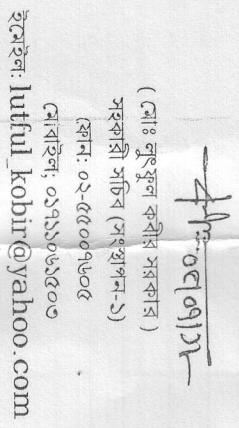 (মোঃ লুৎফুল কবীর সরকার)
সহকারী সচিব (সংস্থাপন-১)
ফোন: ০২-৫৫০০৭৬০৫
মোবাইল: ০১৭১১০৬১৫০৩
ইমেইল: lutful_kobir@yahoo.com